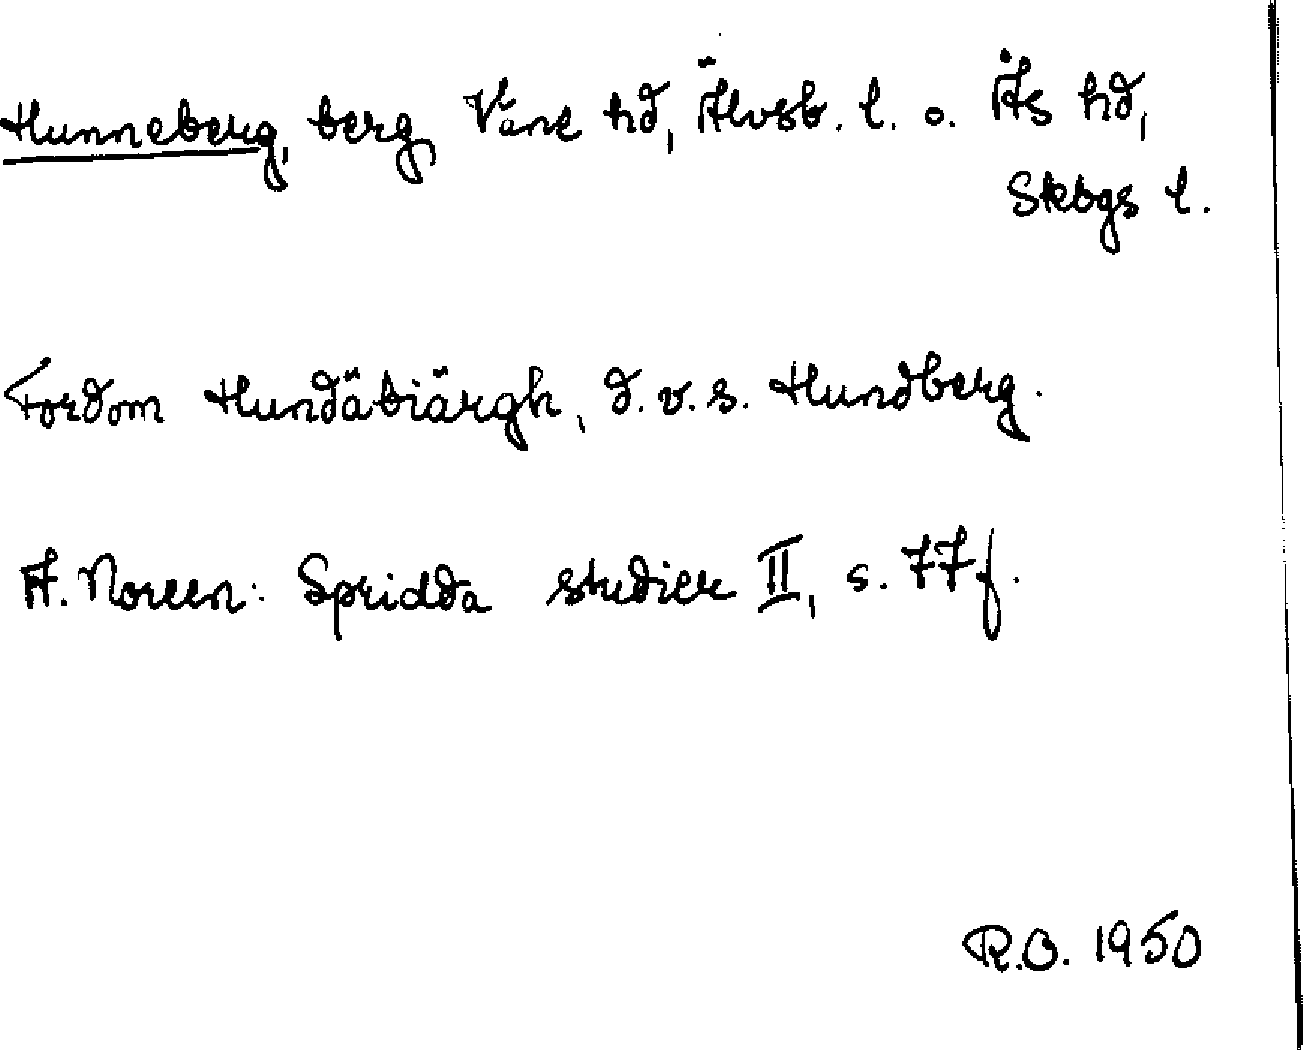 Hunneberg, berg, Väne hd, Älvsb. l. o. Ås hd,
Skbgs l.
Fordom Hundäbiärgh, d.v.s. Hundberg.
A. Noreen: Spridda studier II, s. 77 f.
R.O. 1950